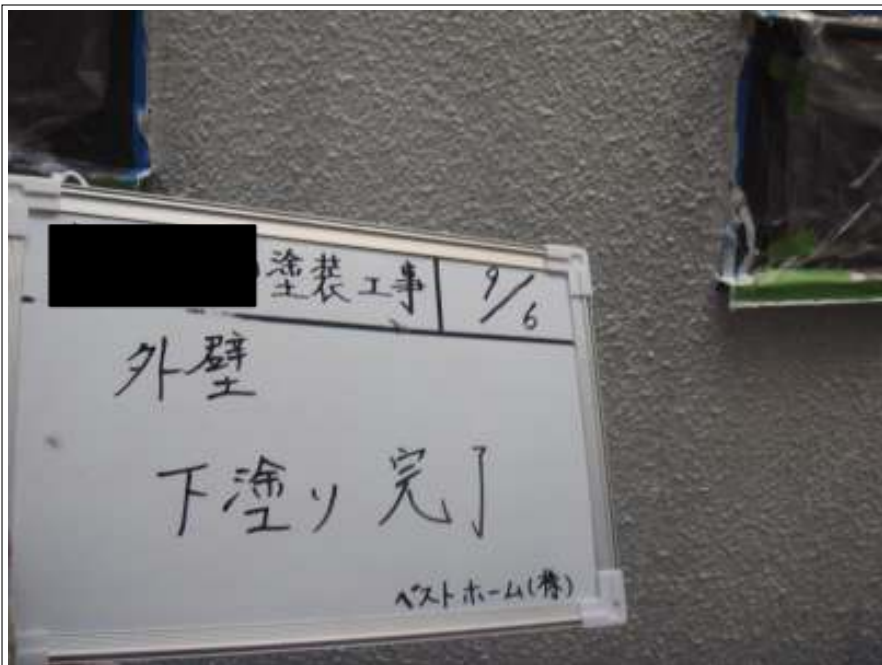 塗装工事 9/6
外壁
下塗り完了
ベストホーム(株)